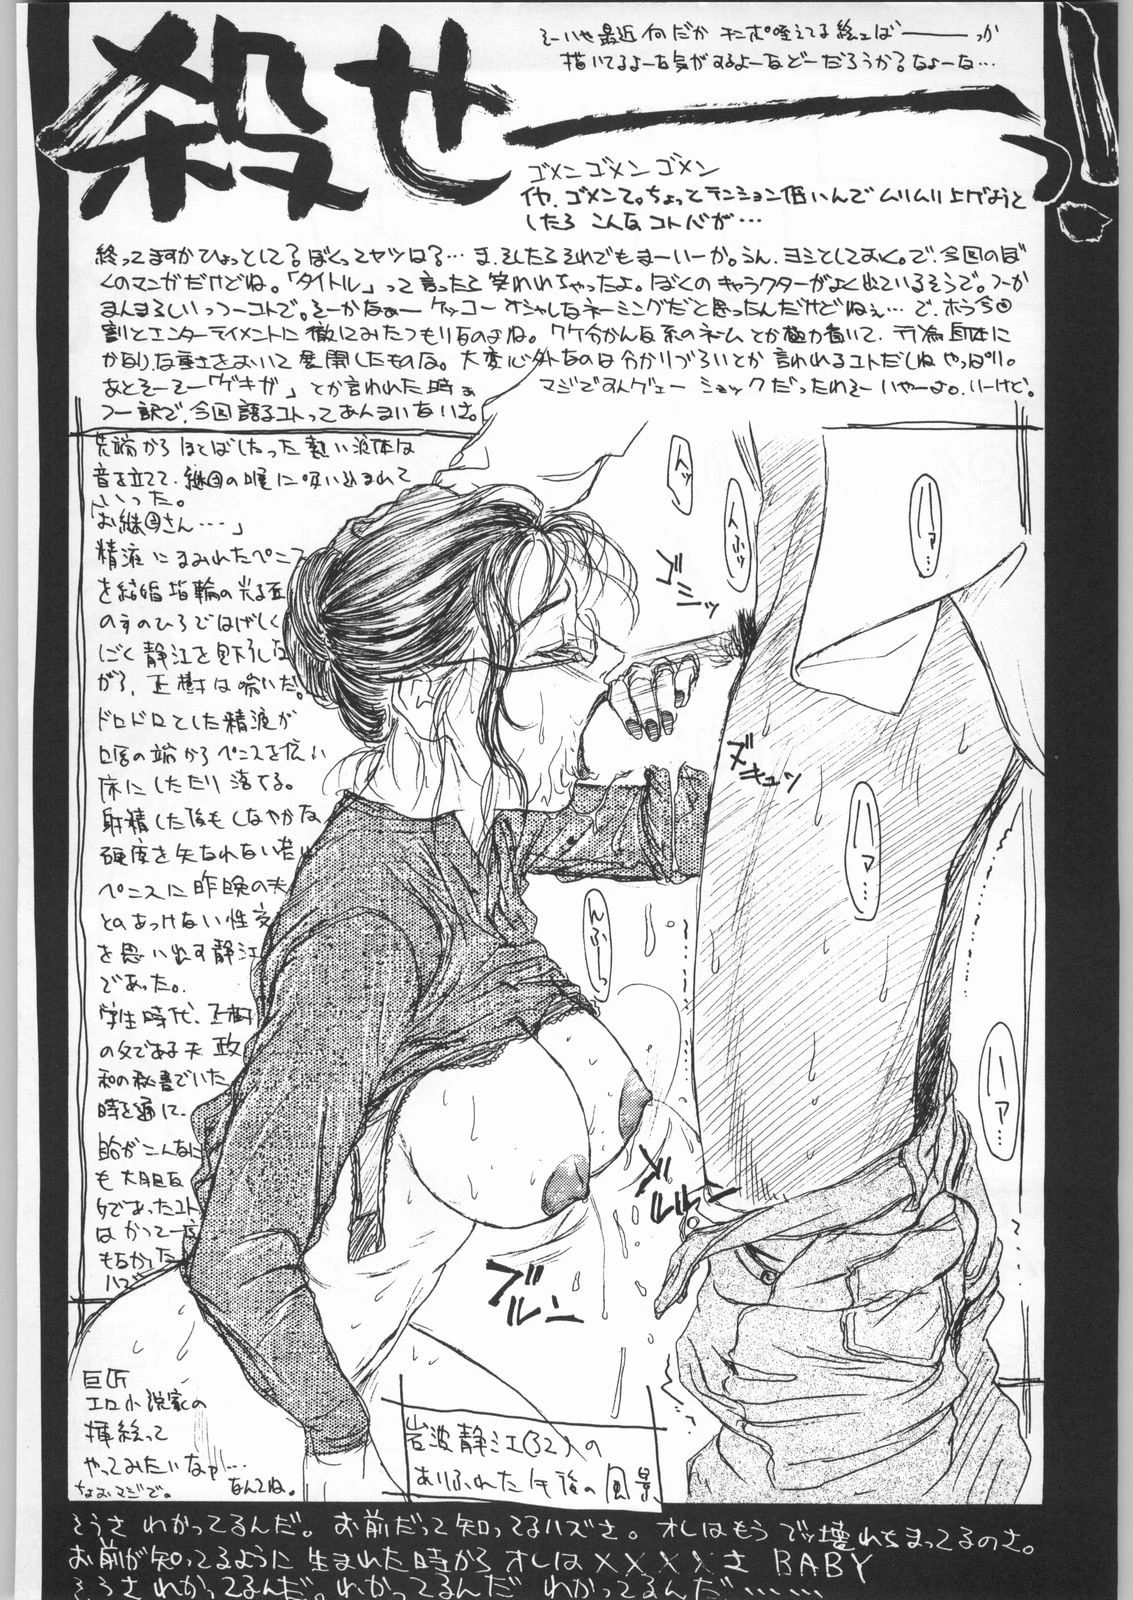 殺せーっ!!
そーいや最近何だか チ○ポ咥えてる絵ェばーーっか
描いてるよーな気がするよーなどーだろうか?なよーな…
ゴメンゴメンゴメン
いや、ゴメンて。ちょっとテンション低いんでムリムリ上げようと
したら こんなコトバが…
終ってますかひょっとして?ぼくってヤツは?… ま、そしたらそれでもまーいーか。うん、ヨシとしておく。で、今回のぼ
くのマンガだけどね。「タイトル」って言ったら笑われちゃったよ。ぼくのキャラクターがよく出ているそうで。つーか
まんまらしいっつーコトで。そーかなぁー ケッコー オシャレなネーミングだと思ったんだけどねぇ… で、ホラ今回
割とエンターテイメントに徹してみたつもりなのよね。ワケ分かんな系のネーム とか極力省いて、行為自体に
かなりな重きをおいて展開したものな。大変心外なのは分かりづらいとか 言われるコトだしね やっぱり。
あとそーそー「ゲキガ」とか言われた時ぁ マジですんげェー ショックだったわそーいやーよ。いーけど。
つー訳で、今回語るコトってあんまいないさ。
先端から ほとばしった熱い液体は
音を立てて、継母の喉に吸い込まれて
いった。
「お継母さん‥‥」
精液にまみれたペニス
を結婚指輪の光る
のひらではげしく
しごく静江を見下しな
がら、正樹は喘いだ。
ドロドロとした精液が
口唇の端からペニスを伝い
床にしたたり落ちる。
射精した後もしなやかな
硬度を失なわない若い
ペニスに昨晩の夫
とのあっけない性交
を思い出す静江
であった。
学生時代、正樹
の父である夫 政
和の秘書でいた
時を通じ、
自分がこんなに
も大胆な
であったコト
はかつて一度
もなかった
ハズ
ンッ
んぶッ
ハァ…
ズミッ
ズキュッ
ハァ…
んぶーっ
ハァ…
ブルルン
ブルン
巨匠
エロ小説家の
挿絵って
やってみたいなァ…
なんてね。
なおマジで。
岩波静江(32)の
ありふれた午後の風景
そうさ わかってるんだ。お前だって知ってるハズさ。オレはもう 壊れちまってるのさ。
お前が知ってるように 生まれた時から オレは××××さ BABY
そうさわかってるんだ。わかってるんだ わかってるんだ‥‥‥